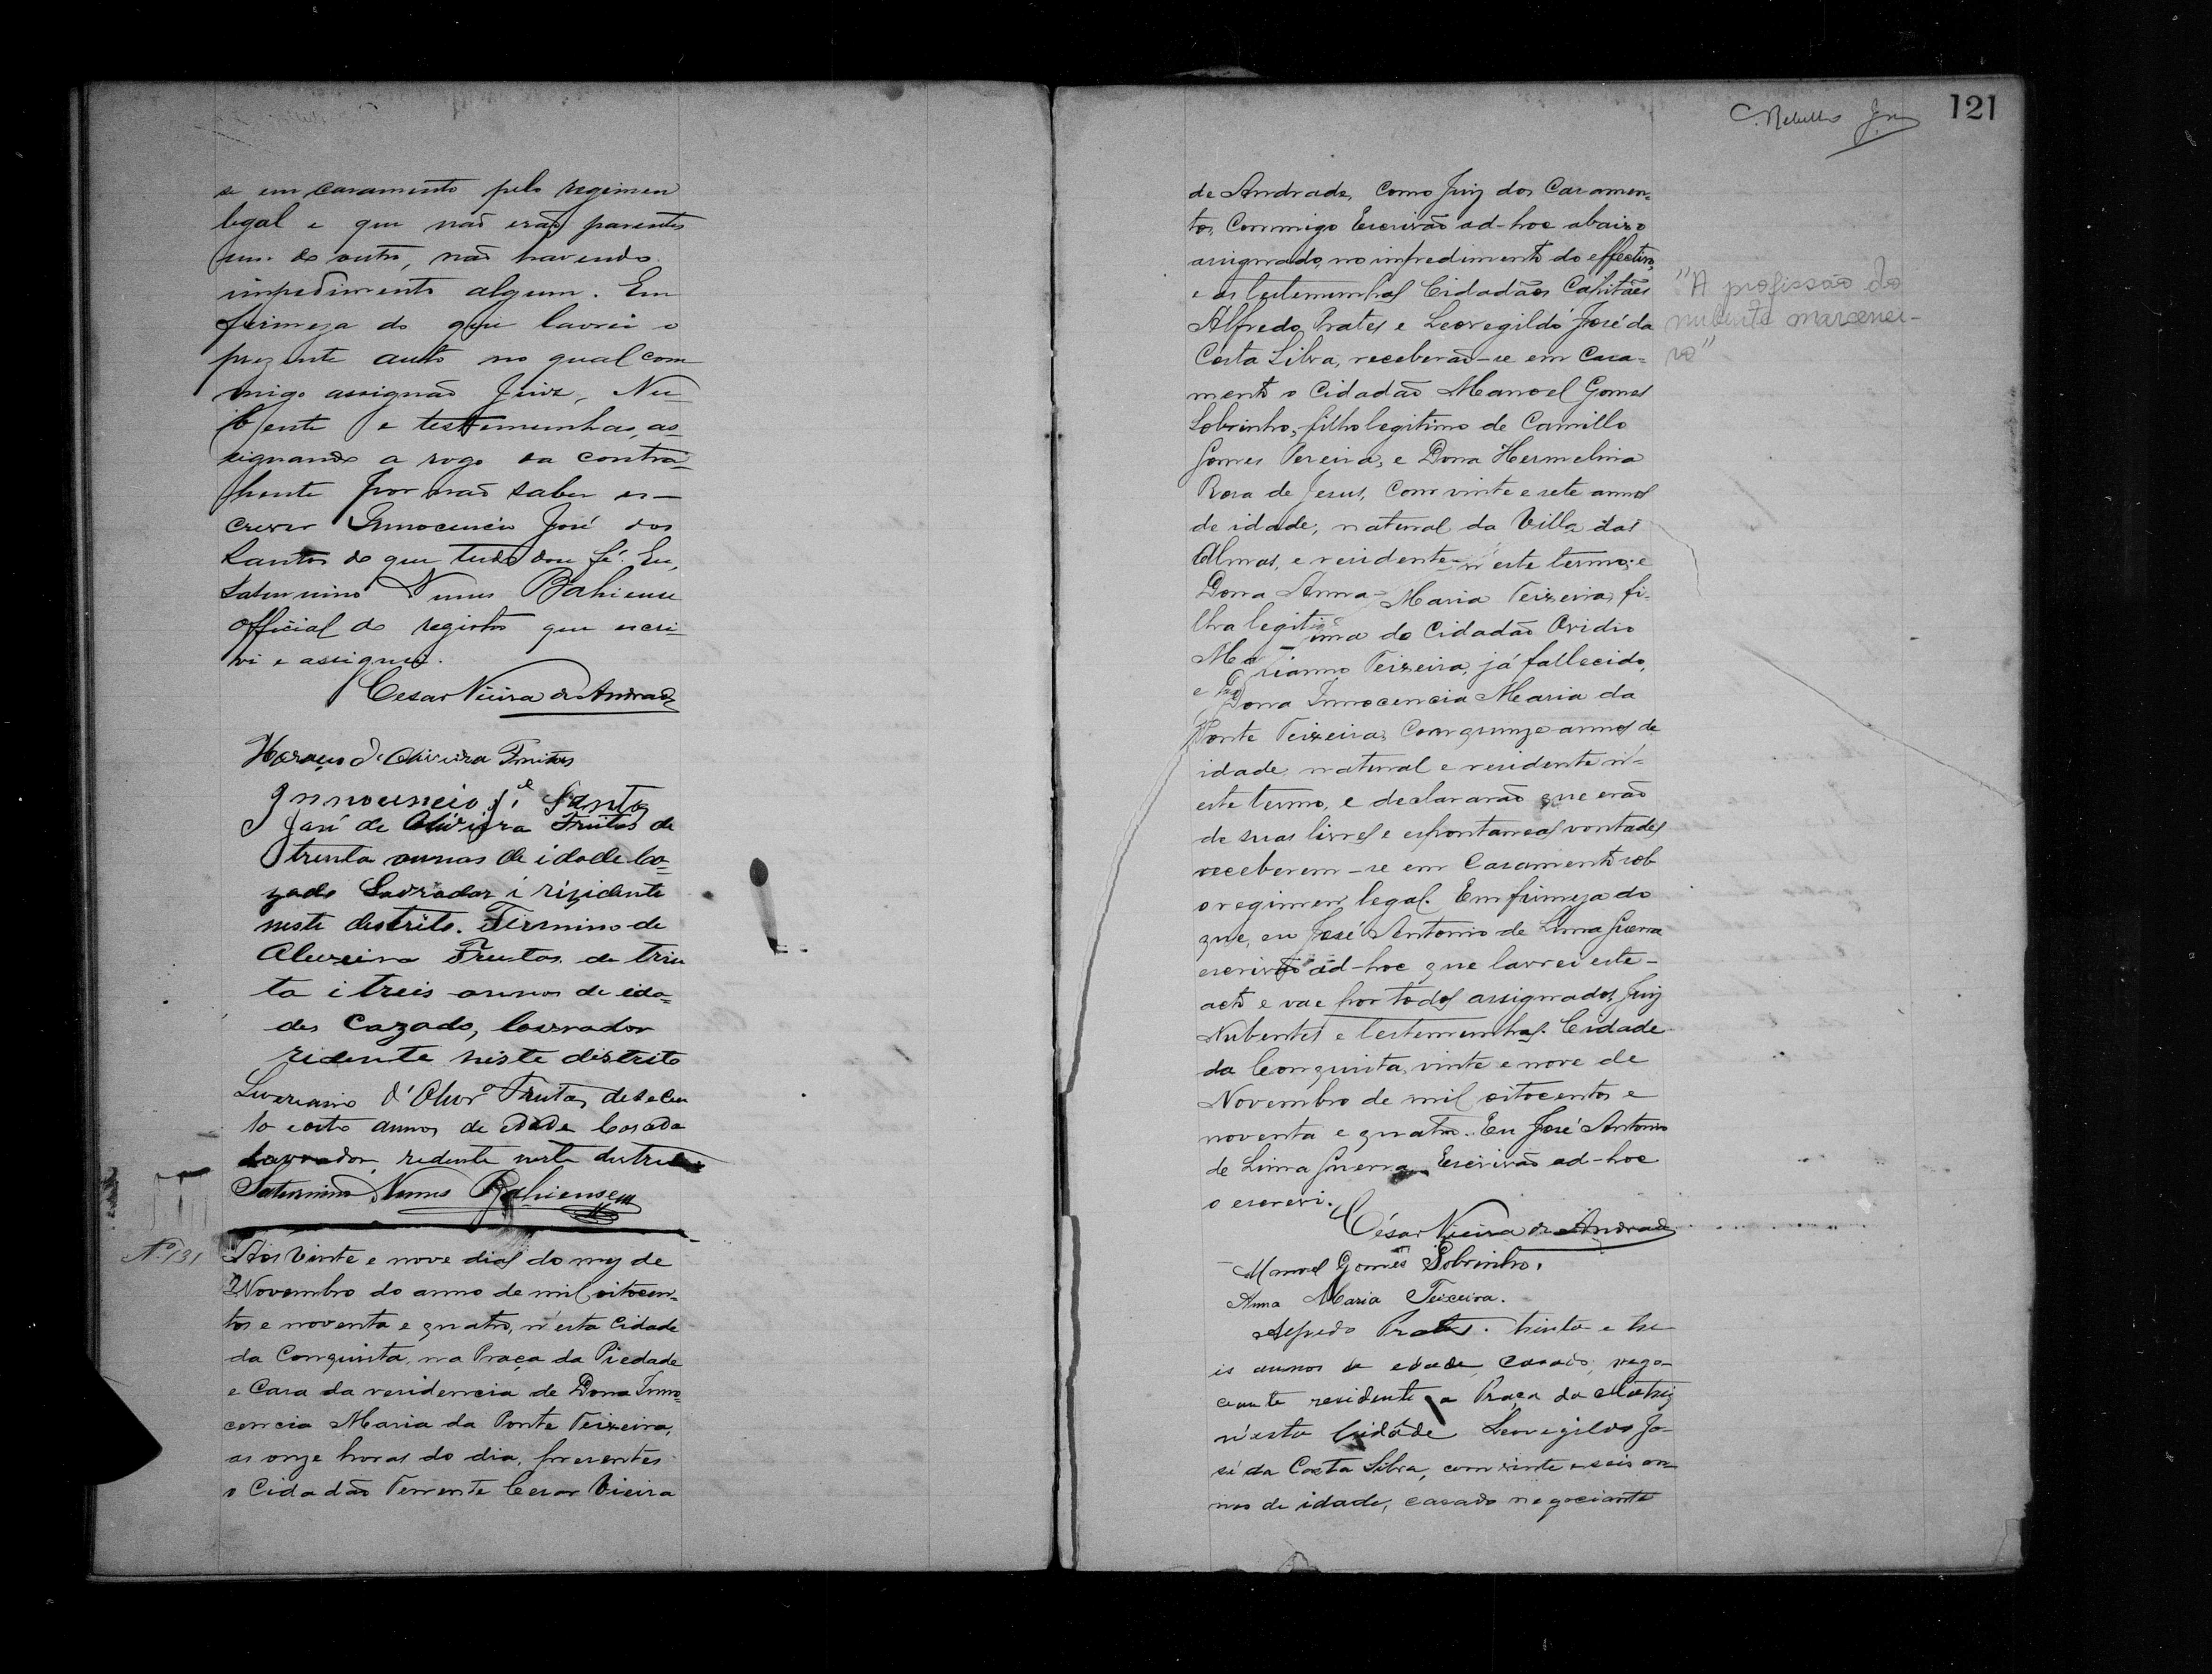 se em casamento pelo regimen
legal e que não erão parentes
um do outro, não havendo
impedimento algum. Em
firmeza do que lavrei o
prezente auto no qual com
migo assignão Juiz, Nu-
bente e testemunhas, as-
signando a rogo da contra-
hente por não saber es-
crever Innocencio José dos
Santos do que tudo dou fé. Eu,
Saturnino Nunes Bahiense
Official do registro que escri-
vi e assignei.
Cesar Vieira de Andrade
de Oliveira Freitas
Innocencio Santos
José de Oliveira Freitas de
trinta annos de idade Ca-
zado Lavrador i rizidente
neste destrito. Firmino de
Oliveira Freitas de trin
ta i treis annos de ida-
des Cazado, lavrador
zidente niste distrito
d'Olivrª Freitas de secen
ta e oito annos de edade Casado
lavrador zidente neste destrito
Saturnino Nunes Bahiense
Nº 131
Aos vinte e nove dias do mez de
Novembro do anno de mil oitocen-
tos e noventa e quatro, n'esta Cidade
da Conquista, na Praça da Piedade
e Casa da residencia de Dona Inno-
cencia Maria da Ponte Teixeira,
as onze horas do dia, presentes
o Cidadão Tenente Cesar Vieira
121
de Andrade, como Juiz dos Casamen-
tos, Commigo Escrivão ad-hoc abaixo
assignado, no impedimento do effectivo,
e as testemunhas Cidadãos Capitães
Alfredo Prates e Leovegildo José da
Costa Silva, receberão-se em Casa-
mento o Cidadão Manoel Gomes
Sobrinho, filho legitimo de Camillo
Gomes Pereira, e Dona Hermelina
Rosa de Jesus, com vinte e sete annos
de idade, natural da Villa das
Almas, e residente n'este termo; e
Dona Anna Maria Teixeira, fi-
lha legitima do Cidadão Ovidio
Marianno Teixeira, já fallecido,
e Dona Innocencia Maria da
Ponte Teixeira, com quinze annos de
idade, natural e residente n'-
este termo, e declararão que erão
de suas livres e espontaneas vontades
receberem-se em Casamento sob
o regimen legal. Em firmeza do
que, eu José Antonio de Lima Guerra
escrivão ad-hoc que lavrei este
acto e vae por todos assignados, Juiz
Nubentes e testemunhas. Cidade
da Conquista, vinte e nove de
Novembro de mil oitocentos e
noventa e quatro. Eu José Antonio
de Lima Guerra Escrivão ad-hoc
o escrevi.
César Vieira de Andrade
Manoel Gomes Sobrinho.
Anna Maria Teixeira.
Alfredo Prates. trinta e tre
is annos de edade, casado, nego-
ciante residente a Praça da Matriz
n'esta Cidade Leovegildo Jo-
sé da Costa Silva, com vinte e seis an-
nos de idade, casado negociante
"A profissão do
nubente marcenei-
ro"